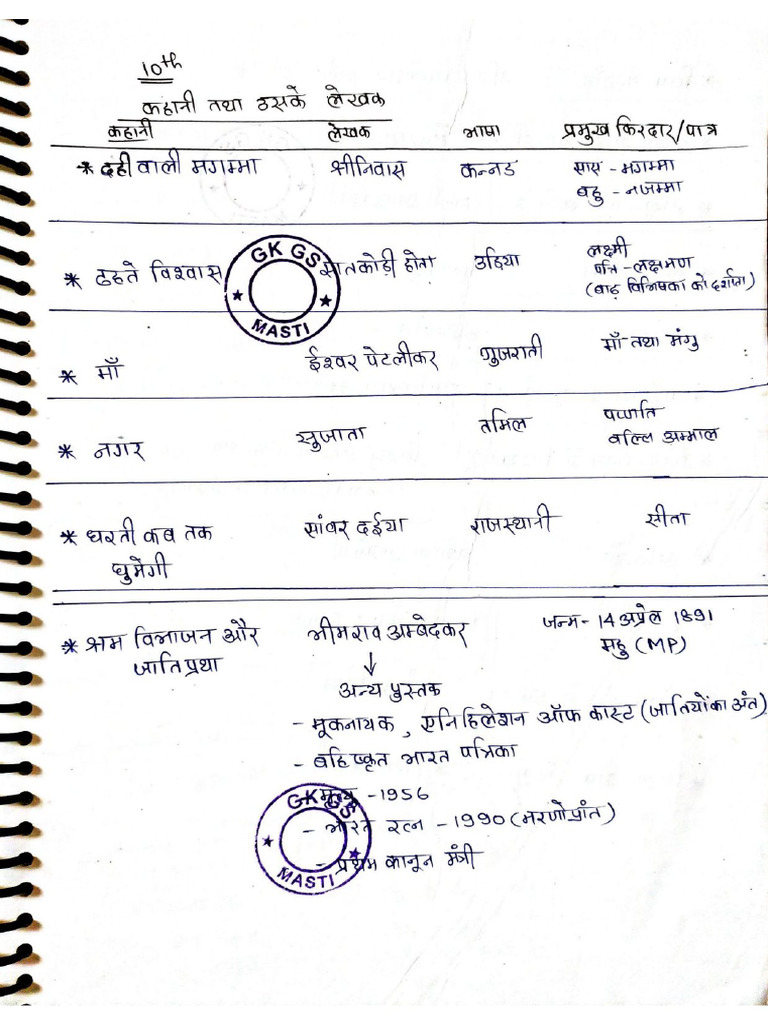 10th
कहानी तथा उसके लेखक
कहानी लेखक भाषा प्रमुख किरदार/पात्र
* दही वाली मगम्मा श्रीनिवास कन्नड सास - मगम्मा
बहु - नजम्मा
* ढहते विश्वास सातकोड़ी होता उडिया लक्ष्मी
पति - लक्षमण
(बाढ़ विभिषका को दर्शाता)
GK GS
MASTI
* माँ ईश्वर पेटलीकर गुजराती माँ तथा मंगु
* नगर सुजाता तमिल पाप्पाति
वल्लि अम्माल
* धरती कब तक सांवर दईया राजस्थानी सीता
घुमेगी
* श्रम विभाजन और भीमराव अम्बेदकर जन्म - 14 अप्रेल 1891
जातिप्रथा महु (MP)
अन्य पुस्तक
- मूकनायक, एनिहिलेशन ऑफ कास्ट (जातियों का अंत)
- बहिष्कृत भारत पत्रिका
- मृत्यु - 1956
- भारत रत्न - 1990 (मरणोप्रांत)
- प्रथम कानून मंत्री
GK GS
MASTI